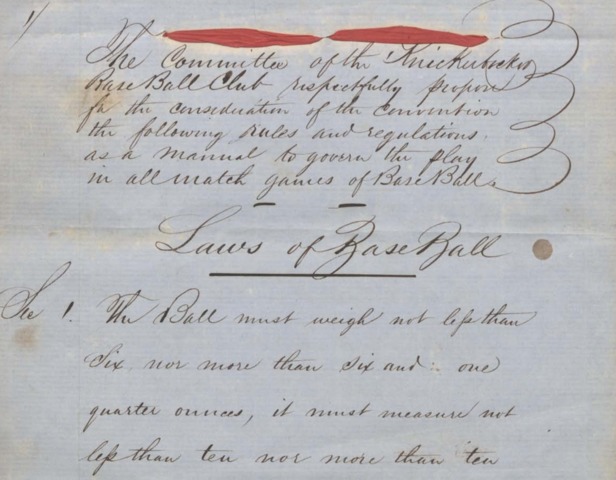 1/
The Committee of the Knickerbocker
Base Ball Club respectfully propose
for the consideration of the Convention
the following rules and regulations,
as a manual to govern the play
in all match games of Base Ball.
Laws of Base Ball
Sec 1. The Ball must weigh not less than
six, nor more than six and one
quarter ounces, it must measure not
less than ten nor more than ten